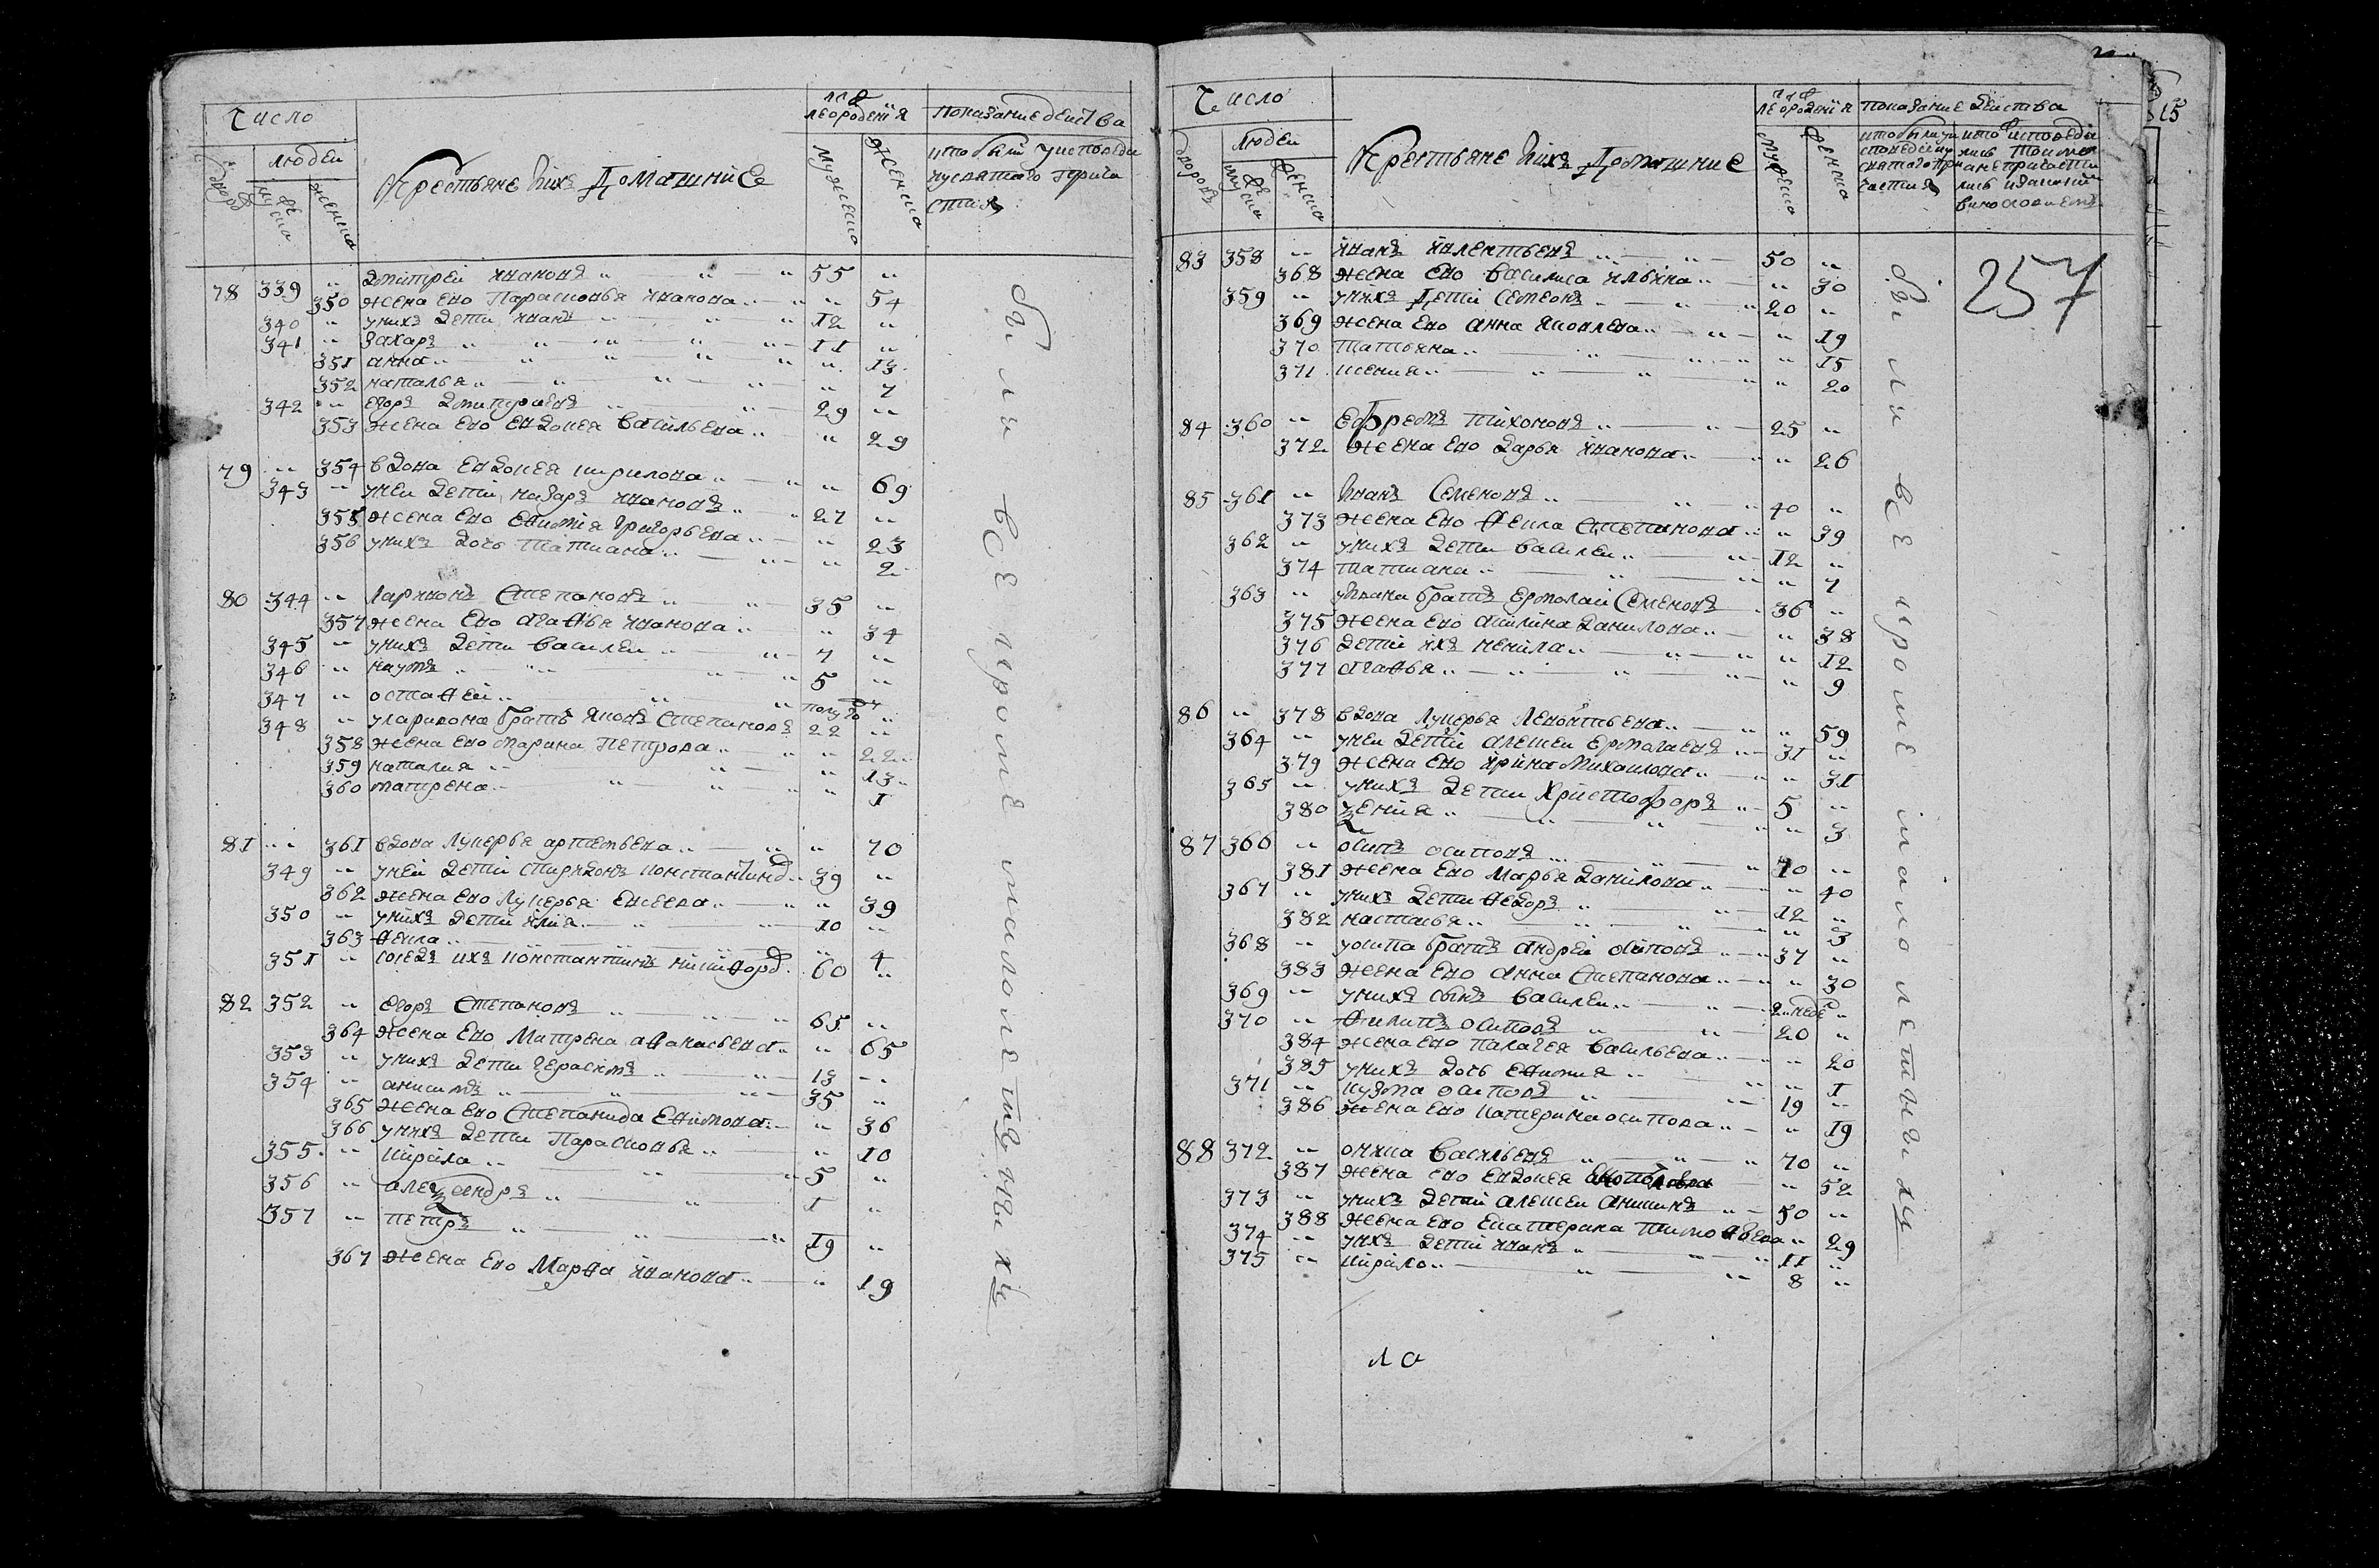 Число
лѣ
Показание действа
дворовъ
людей
мужеска
женска
Крестьяне и ихъ Домашние
лет от рожденїя
мужеска
женска
кто был у исповеди
и у святаго прича
стия
78 339 " Дмитрей Иванов " 55 "
350 жена ево Парасковья Иванова " 54
340 " у них дети Иванъ " 12 "
341 " Захаръ " 11 "
351 анна " " 13
352 наталья " " 7
342 " егоръ Дмитриевъ " 29 "
353 жена ево евдокея васильева " " 29
79 " 354 вдова евдокея кирилова " " 69
343 " у неи дети назаръ Ивановъ " 27 "
355 жена ево ефимия григорьева " " 23
356 у нихъ дочь татиана " " 2
80 344 " Ларионъ Степановъ " 35 "
357 жена ево агафья Иванова " " 34
345 " у нихъ дети василеи " 7 "
346 " наумъ " 5 "
347 " остафей " полу год "
348 " у лариона братъ яковъ Степановъ 22 "
358 жена ево марина Петрова " " 22
359 наталия " " 13
360 матрена " " 1
81 " 361 вдова лукерья артемьева " " 70
349 " у ней дети спиридонъ константинов " 39 "
362 жена ево лукерья евсеева " " 39
350 " у нихъ дети илия " 10 "
363 фекла " " 4
351 " соседъ ихъ константинъ никифоров " 60 "
82 352 " егоръ Степановъ " 65 "
364 жена ево Матрена афанасьева " " 65
353 " у нихъ дети герасимъ " 13 "
354 " анисимъ " 35 "
365 жена ево Степанида Ефимова " " 36
366 у нихъ дети Парасковья " " 10
355 " кирѣла " 5 "
356 " алеѯандръ " 1 "
357 " петръ " 19 "
367 жена ево Марфа Иванова " " 19
были все кроме малолетныхъ
Число
Показание действа
дворовъ
людей
мужеска
женска
Крестьяне и ихъ Домашние
лет от рожденїя
мужеска
женска
257
83 358 " Иванъ Ивлентьевъ " 50 "
368 жена ево василиса ильина " " 30
359 " у нихъ дети Семеонъ " 20 "
369 жена ево анна яковлева " " 19
370 татьяна " " 15
371 ксения " " 20
84 360 " Ефремъ Тихоновъ " 25 "
372 жена ево дарья Иванова " " 26
85 361 " Иванъ Семеновъ " 40 "
373 жена ево фекла Степанова " " 39
362 " у нихъ дети василеи " 12 "
374 татиана " " 7
363 " у Ивана братъ ермолаи Семеновъ " 36 "
375 жена ево акилина данилова " " 38
376 дети ихъ ненила " " 12
377 агафья " " 9
86 " 378 вдова лукерья Леонтьева " " 59
364 " у неи дети алексеи ермолаевъ " 31 "
379 жена ево Ирина Михаилова " " 31
365 " у нихъ дети Христофоръ " 5 "
380 ѯения " " 3
87 366 " осипъ осиповъ " 70 "
381 жена ево Марья данилова " " 40
367 " у нихъ дети федоръ " 12 "
382 настасья " " 3
368 " у осипа братъ андрей осиповъ " 37 "
383 жена ево анна Степанова " " 30
369 " у нихъ сынъ василеи " 2 неде "
370 " филипъ осиповъ " 20 "
384 жена ево палагея васильева " " 20
385 у нихъ дочь ефимия " " 1
371 " кузма осиповъ " 19 "
386 жена ево катерина осипова " " 19
88 372 " аника васильевъ " 70 "
387 жена ево евдокея " 52
373 " у нихъ дети алексеи аникинъ " 50 "
388 жена ево екатерина тимофеева " 29
374 " у нихъ дети иванъ " 11 "
375 " кирѣло " 8 "
были все кроме малолетныхъ
ла
15